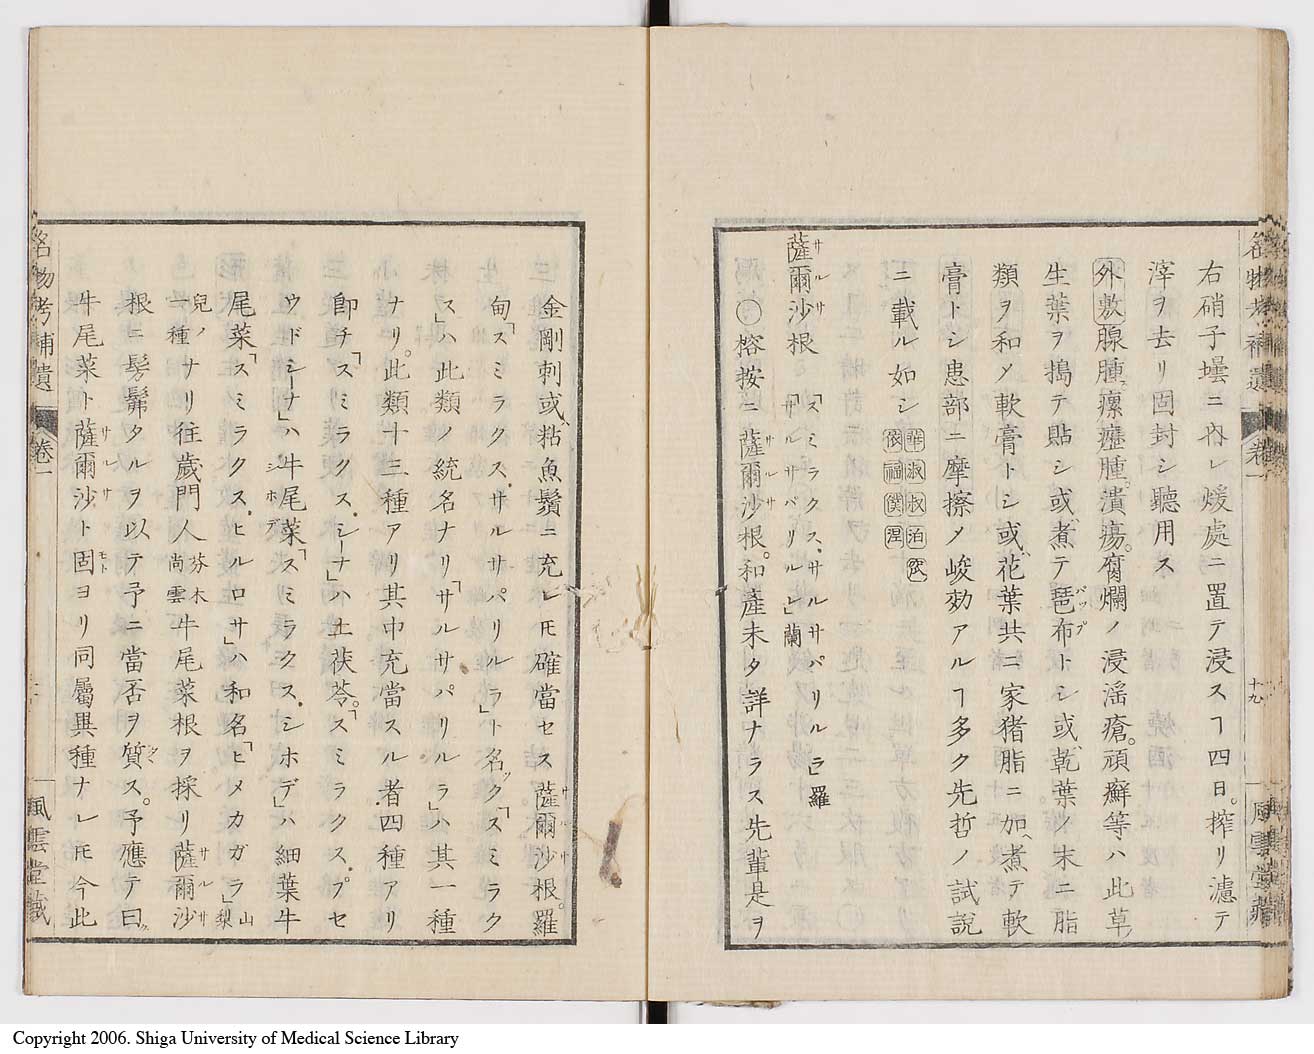 右硝子壜ニ內レ煖處ニ置テ浸スヿ四日。搾リ濾テ
滓ヲ去リ固封シ聽用ス
外敷腺腫。瘰癧腫。潰瘍。腐爛ノ浸淫瘡。頑癬等ハ此草ノ
生葉ヲ搗テ貼シ或ハ煮テ琶布トシ或ハ乾葉ノ末ニ脂
類ヲ和メ軟膏トシ或ハ花葉共ニ家猪脂ニ加ヘ煮テ軟
膏トシ患部ニ摩擦メ峻効アルヿ多ク先哲ノ試說
ニ載ル如シ
薩爾沙根「スミラクス、サルサパリルラ」羅「サルサパリルレ」蘭
○榕按ニ薩爾沙根。和產未タ詳ナラス先輩是ヲ
名物考補遺 卷一 十九 風雲堂藏
金剛刺或ハ粘魚鬚ニ充レモ確當セス薩爾沙根。羅
甸「スミラクス、サルサパリルラ」ト名ツク「スミラク
ス」ハ此類ノ統名ナリ「サルサパリルラ」ハ其一種
ナリ。此類十三種アリ其中充當スル者四種アリ
卽チ「スミラクス、シーナ」ハ土茯苓。「スミラクス、プセ
ウドシーナ」ハ牛尾菜「スミラクス、シホデ」ハ細葉牛
尾菜「スミラクス、ヒルロサ」ハ和名「ヒメカガラ」山梨
兒ノ一種ナリ往歲門人芬木尚雲牛尾菜根ヲ採リ薩爾沙
根ニ髣髴タルヲ以テ予ニ當否ヲ質ス。予應テ曰ク
牛尾菜ト薩爾沙ト固ヨリ同屬異種ナレモ今此
名物考補遺 卷一 風雲堂藏
Copyright 2006. Shiga University of Medical Science Library